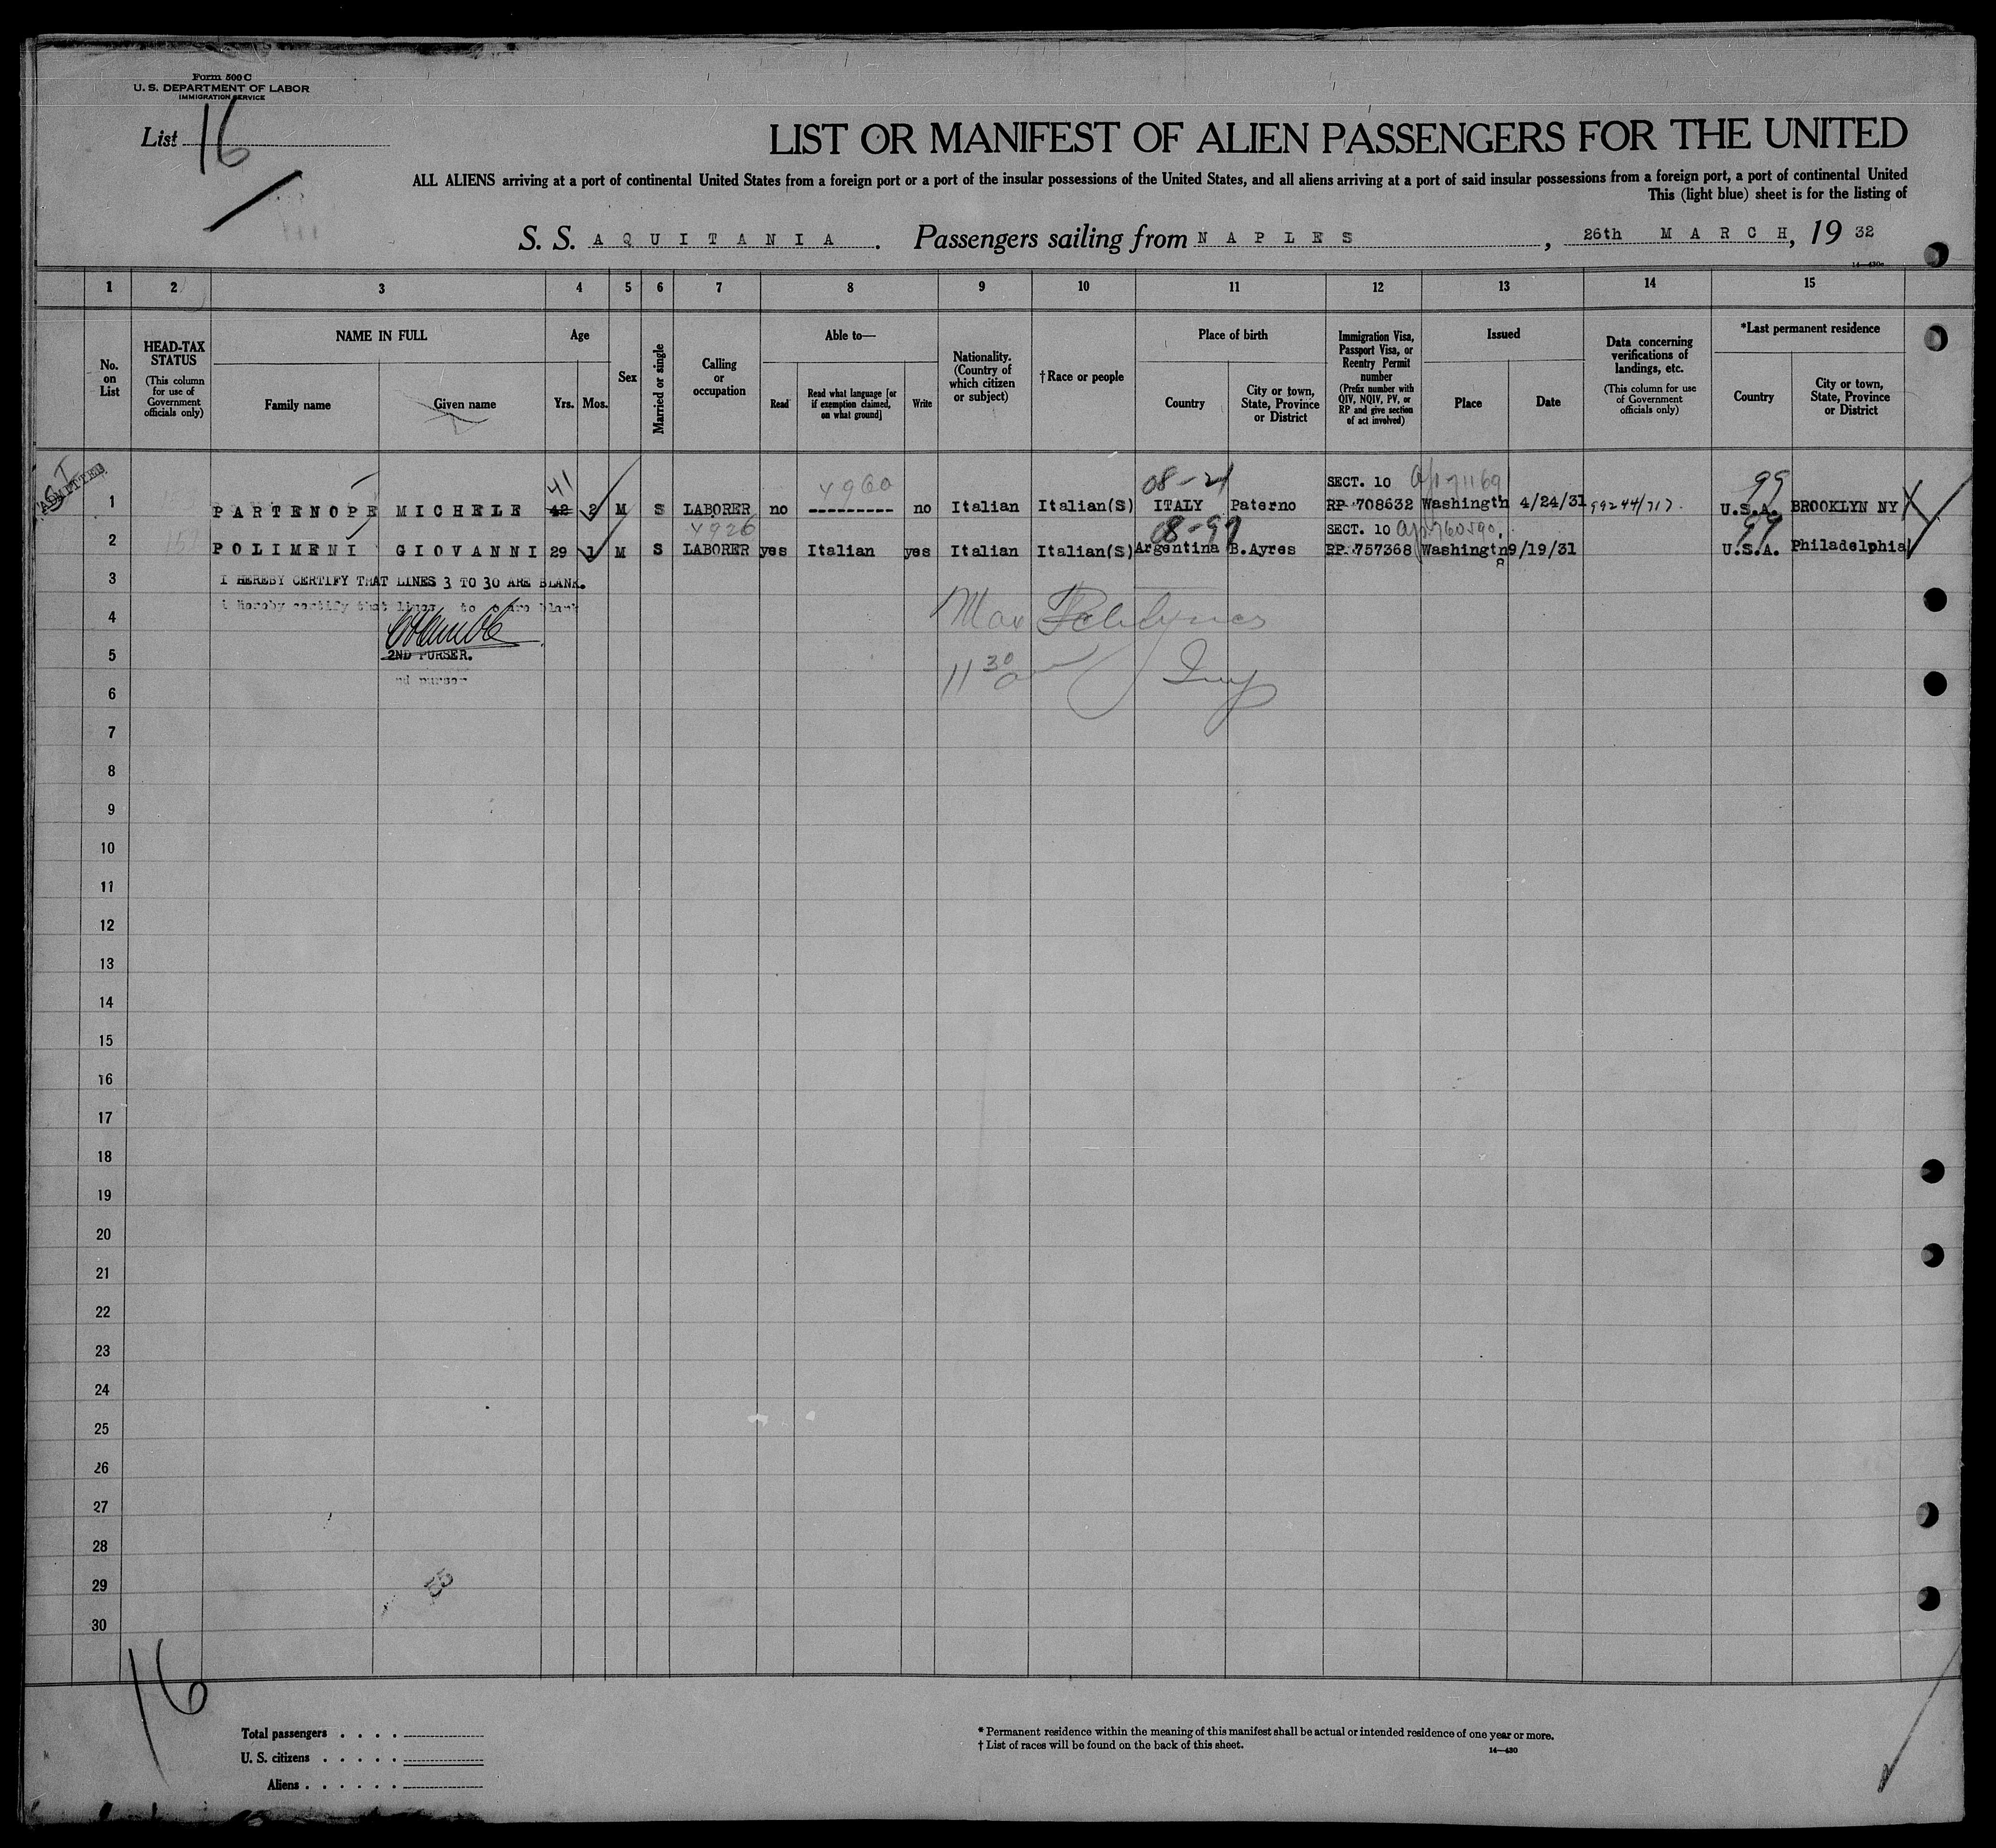 Form 500 C
U. S. DEPARTMENT OF LABOR
IMMIGRATION SERVICE
List 16
LIST OR MANIFEST OF ALIEN PASSENGERS FOR THE UNITED
ALL ALIENS arriving at a port of continental United States from a foreign port or a port of the insular possessions of the United States, and all aliens arriving at a port of said insular possessions from a foreign port, a port of continental United
This (light blue) sheet is for the listing of
S. S. AQUITANIA. Passengers sailing from NAPLES, 26th MARCH, 19 32
14—430a
1 2 3 4 5 6 7 8 9 10 11 12 13 14 15
No. on List
HEAD-TAX STATUS (This column for use of Government officials only)
NAME IN FULL
Family name
Given name
Age
Yrs. Mos.
Sex
Married or single
Calling or occupation
Able to—
Read
Read what language [or if exemption claimed, on what ground]
Write
Nationality. (Country of which citizen or subject)
†Race or people
Place of birth
Country
City or town, State, Province or District
Immigration Visa, Passport Visa, or Reentry Permit number (Prefix number with QIV, NQIV, PV, or RP and give section of act involved)
Issued
Place
Date
Data concerning verifications of landings, etc. (This column for use of Government officials only)
*Last permanent residence
Country
City or town, State, Province or District
ADMITTED
41 4960 08-21 SECT. 10 99
1 PARTENOPE MICHELE 42 2 M S LABORER no --------- no Italian Italian(S) ITALY Paterno RP 708632 Washingtn 4/24/31 99244/717 U.S.A. BROOKLYN NY
4926 08-99 SECT. 10 99
2 POLIMENI GIOVANNI 29 1 M S LABORER yes Italian yes Italian Italian(S) Argentina B.Ayres RP. 757368 Washingtn 9/19/31 U.S.A. Philadelphia
3 I HEREBY CERTIFY THAT LINES 3 TO 30 ARE BLANK.
I hereby certify that lines to are blank
4 Max
5 2ND PURSER.
11 30 Insp
nd purser
6
7
8
9
10
11
12
13
14
15
16
17
18
19
20
21
22
23
24
25
26
27
28
29
30
16
Total passengers . . . .
U. S. citizens . . . . .
Aliens . . . . . .
* Permanent residence within the meaning of this manifest shall be actual or intended residence of one year or more.
† List of races will be found on the back of this sheet.
14—430